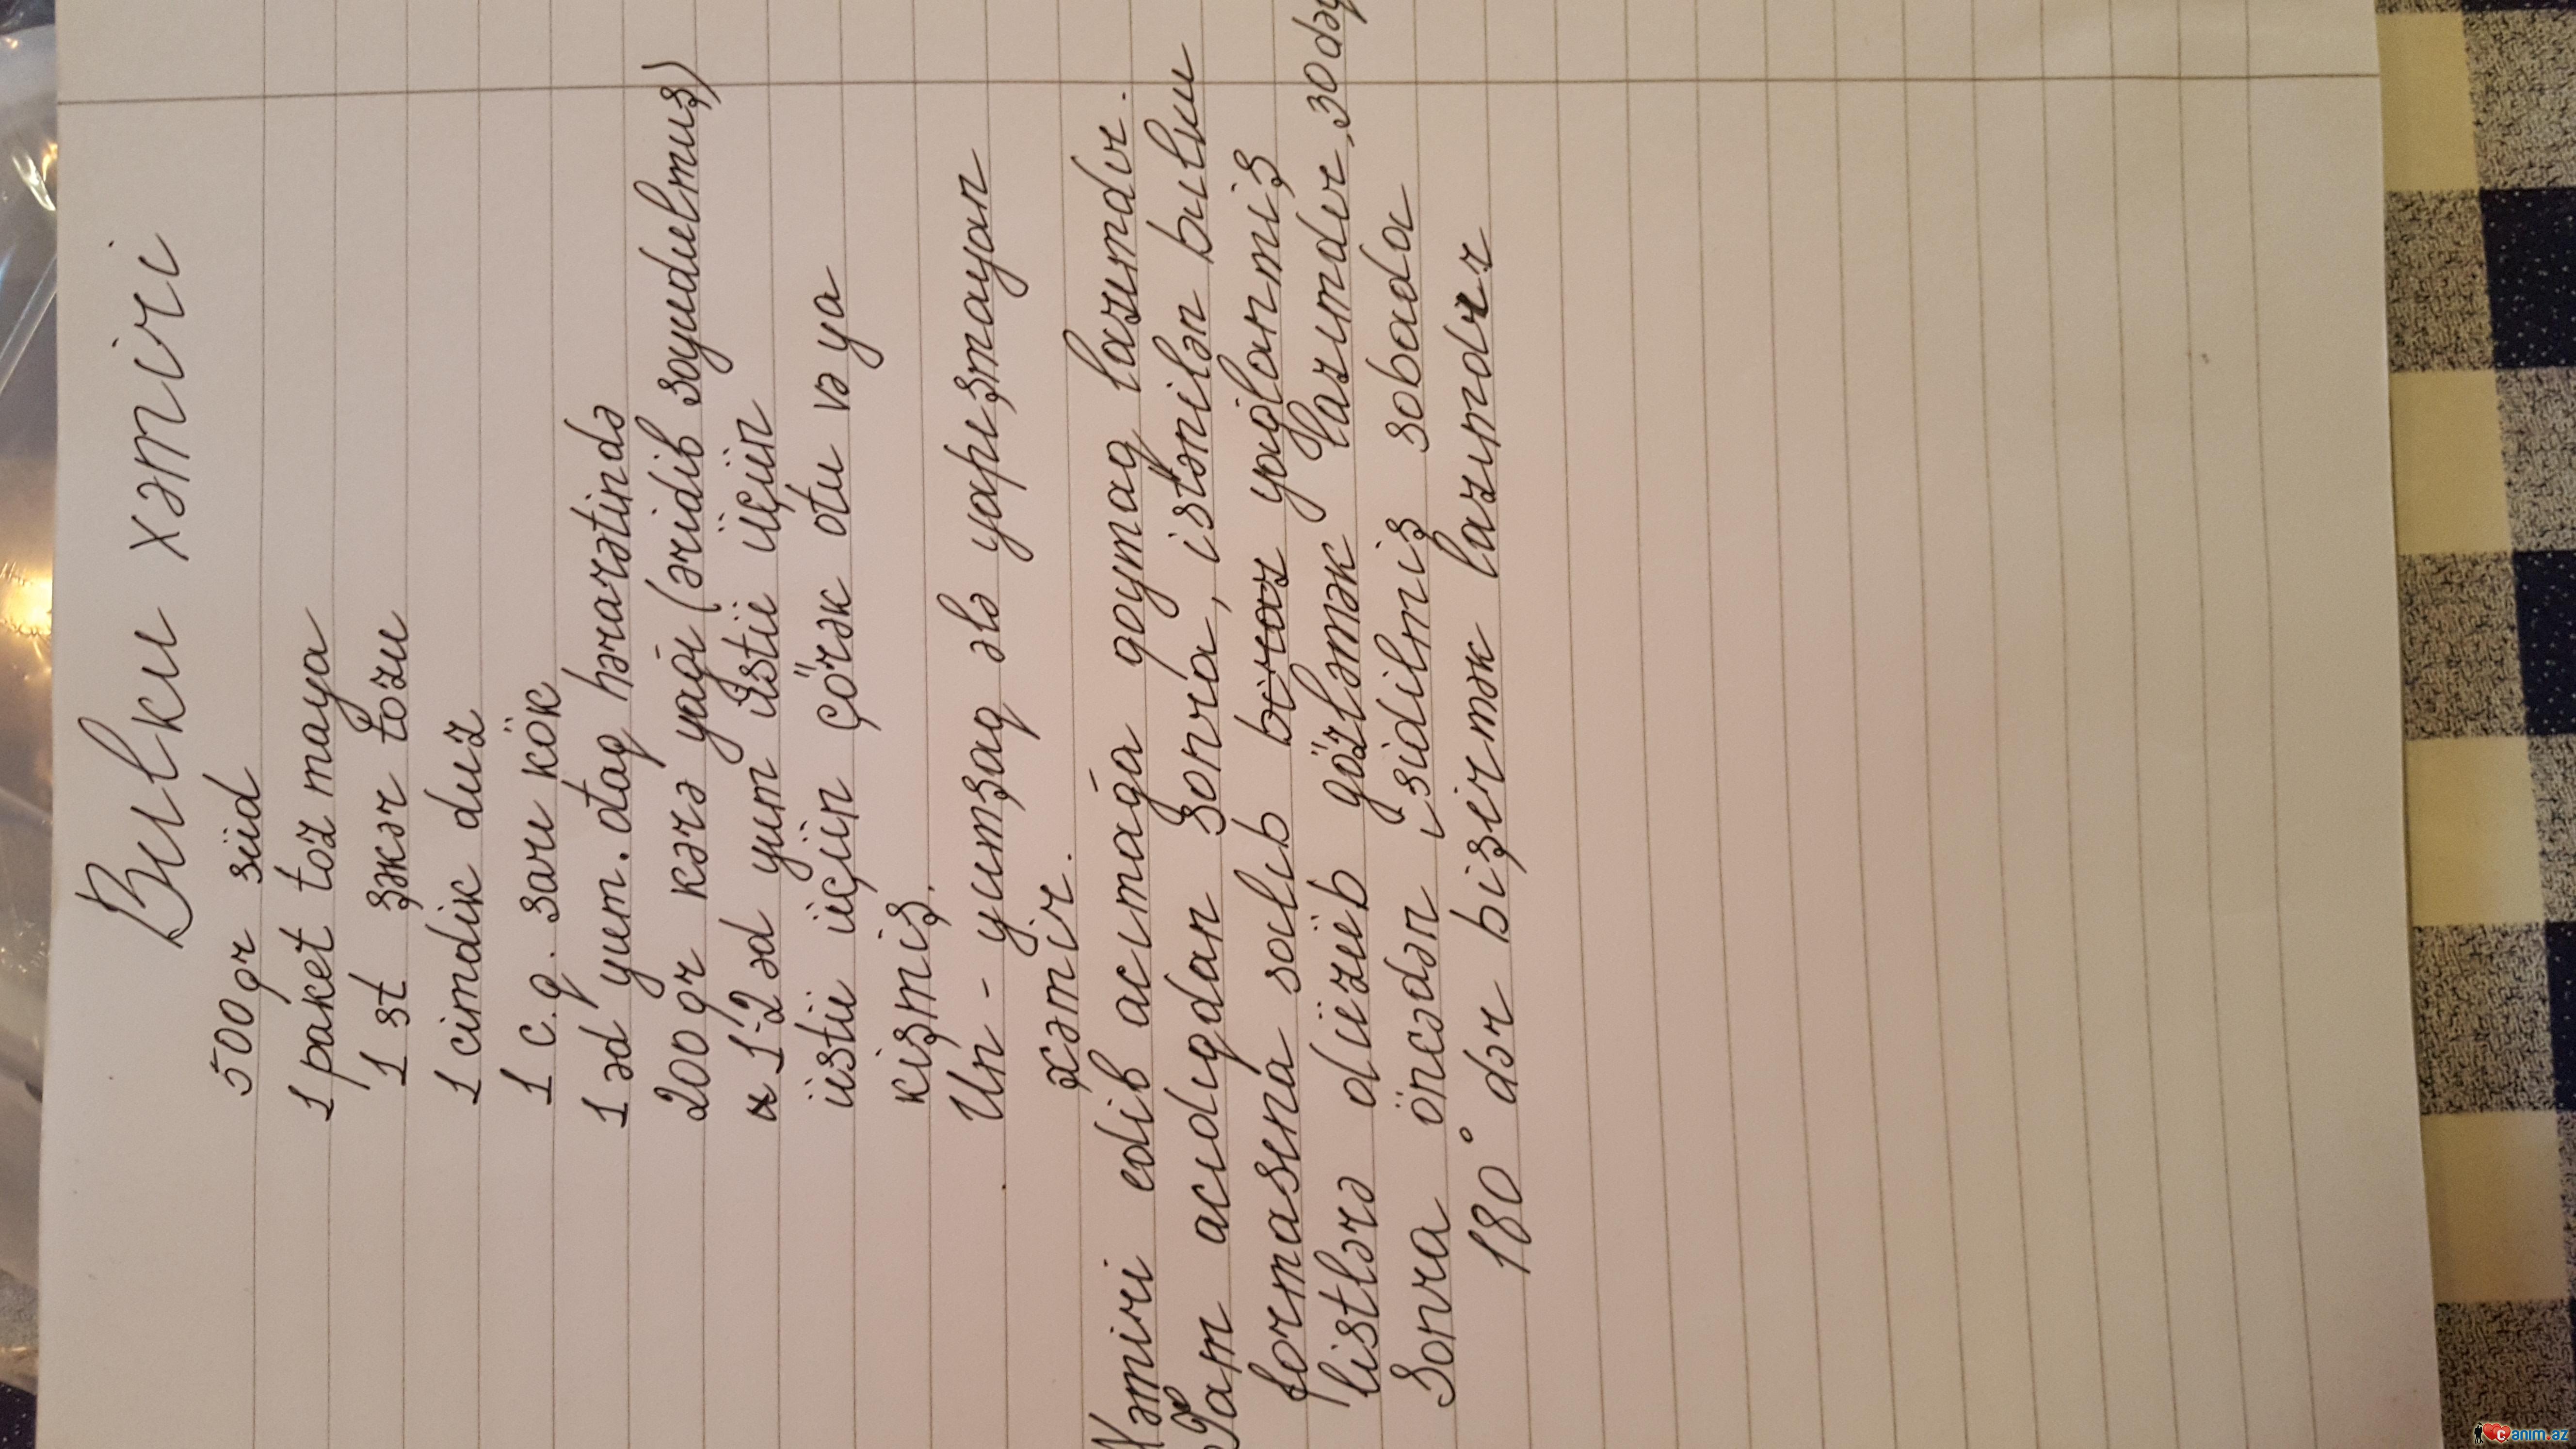 Bulku xəmiri
500 gr süd
1 paket toz maya
1 st şəkər tozu
1 cimdik duz
1 c.q. sarı kök
1 əd yum. otaq hərarətində
200 gr kərə yağı (əridib soyudulmuş)
1-2 əd yum üstü üçün
üstü üçün çörək otu və ya
kişmiş.
Un - yumşaq ələ yapışmayan
xəmir.
Xəmiri edib acımağa qoymaq lazımdır.
Tam acıdıqdan sonra, istənilən bulku
formasına salıb biraz yağlanmış
listlərə düzüb gözləmək lazımdır, 30 dəq
Sonra öncədən isidilmiş sobada
180° dər bişirmək lazımdır
canim.az